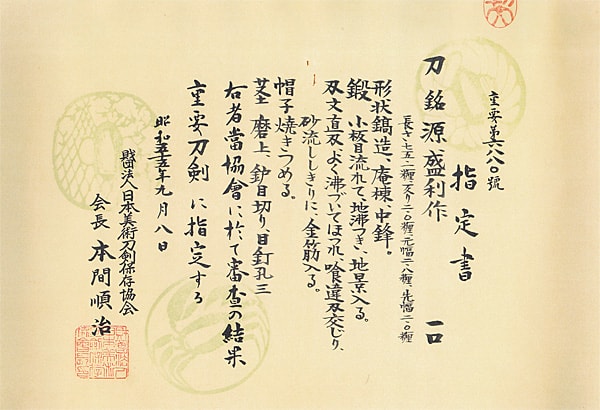 指定書
刀 銘 源盛利作 一口
形状 鎬造、庵棟、中鋒。
鍛 小板目流れて、地沸つき、地景入る。
刃文 直刃、よく沸づいてほつれ、喰違刃交じり、
砂流ししきりに、金筋入る。
帽子 焼きつめる。
茎 磨上、鑢目切り、目釘孔三
右者當協會に於て審査の結果
重要刀剣に指定する
昭和五十五年九月八日
財団法人日本美術刀剣保存協会
会長 本間順治